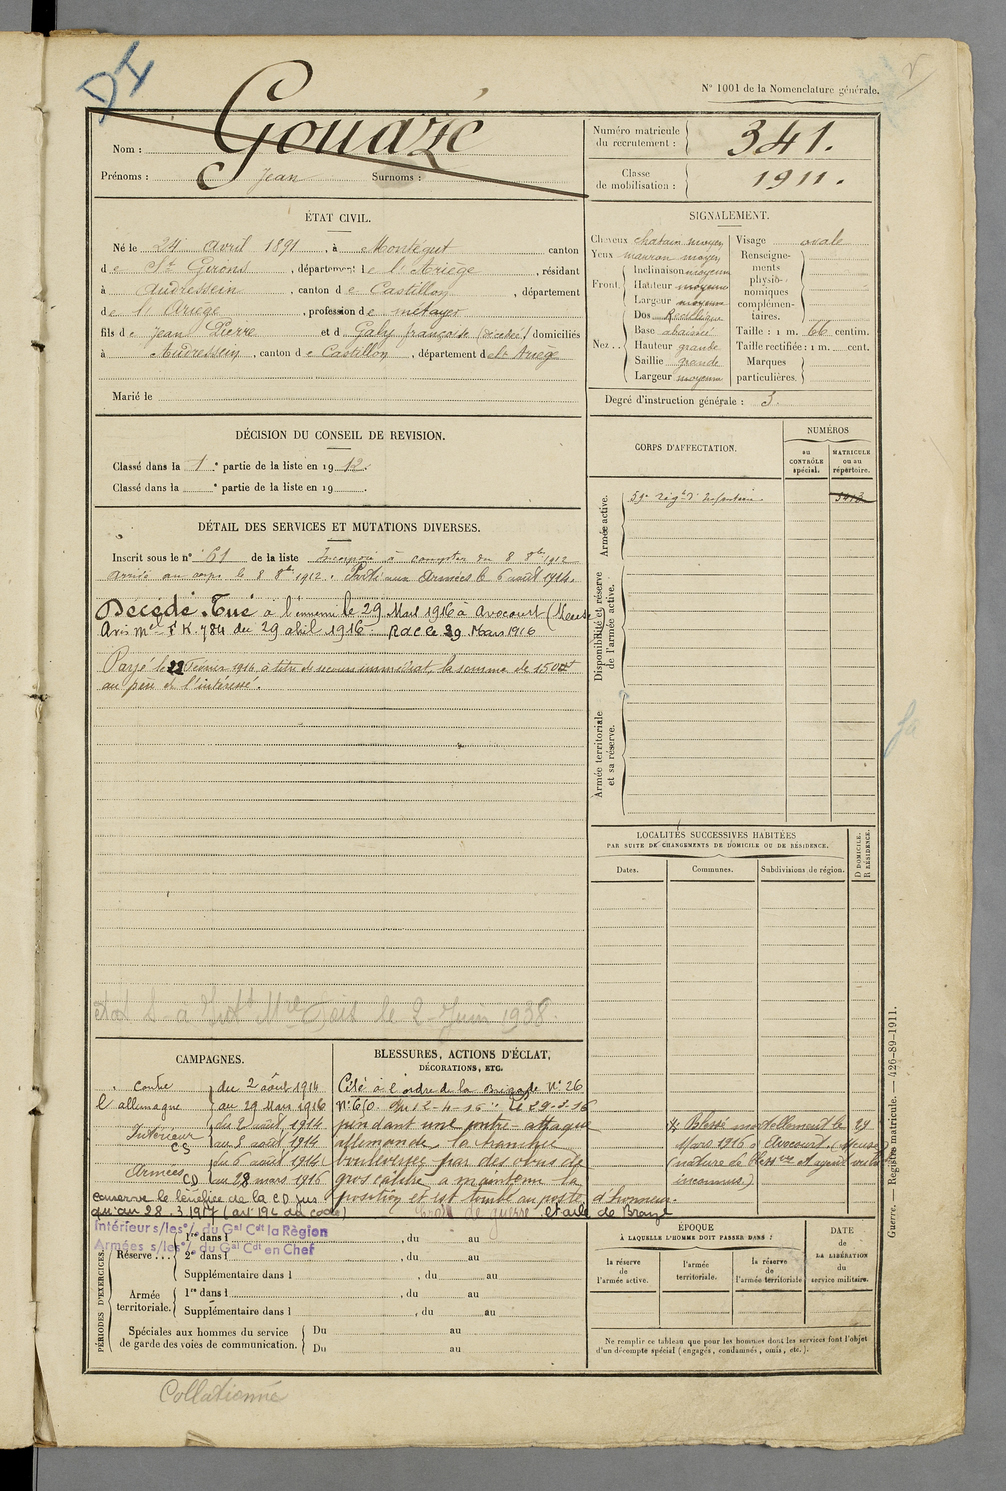 DI
N° 1001 de la Nomenclature générale.
Nom : Gouazé
Prénoms : Jean Surnoms :
Numéro matricule du recrutement : 341.
Classe de mobilisation : 1911.
ÉTAT CIVIL.
Né le 24 avril 1891, à Montégut canton
de St Girons, département de l'Ariège, résidant
à Audressein, canton de Castillon, département
de l'Ariège, profession de métayer
fils de Jean Pierre et de Galy françoise (décédée) domiciliés
à Audressein, canton de Castillon, département de l'Ariège
Marié le
SIGNALEMENT.
Cheveux chatain moyen
Yeux marron moyen
Front. Inclinaison moyenne
Hauteur moyenne
Largeur moyenne
Nez.. Dos Rectiligne
Base abaissée
Hauteur grande
Saillie grande
Largeur moyenne
Visage ovale
Renseignements physionomiques complémentaires.
Taille : 1 m. 66 centim.
Taille rectifiée : 1 m. cent.
Marques particulières.
Degré d'instruction générale : 3.
DÉCISION DU CONSEIL DE REVISION.
Classé dans la 1re partie de la liste en 1912.
Classé dans la e partie de la liste en 19 .
DÉTAIL DES SERVICES ET MUTATIONS DIVERSES.
Inscrit sous le n° 61 de la liste Incorporé à compter du 8 8bre 1912
Arrivé au corps le 8 8bre 1912. Parti aux Armées le 6 août 1914.
Décédé. Tué à l'ennemi le 29 Mars 1916 à Avocourt (Meuse
Avis Mel FK. 784 du 29 abil 1916. Rac le 29 Mars 1916
Payé le 22 Février 1916 à titre de secours immédiat, la somme de 150f
au père de l'intéressé.
le 2 Juin 1938.
CORPS D'AFFECTATION.
NUMÉROS
au CONTRÔLE spécial.
MATRICULE ou au répertoire.
Armée active.
59e Régt d'Infanterie
Disponibilité et réserve de l'armée active.
Armée territoriale et sa réserve.
LOCALITÉS SUCCESSIVES HABITÉES
PAR SUITE DE CHANGEMENTS DE DOMICILE OU DE RÉSIDENCE.
Dates. Communes. Subdivisions de région. D DOMICILE. R RÉSIDENCE.
CAMPAGNES.
contre l'allemagne du 2 août 1914
au 29 Mars 1916
Intérieur CS du 2 août 1914
au 5 août 1914
Armées CD du 6 août 1914
au 28 mars 1916
conserve le bénéfice de la CD jus
qu'au 28.3.1917 (art 196 du code)
Intérieur s/les o/ du Gal Cdt la Région
Armées s/les o/ du Gal Cdt en Chef
BLESSURES, ACTIONS D'ÉCLAT, DÉCORATIONS, ETC.
Cité à l'ordre de la Brigade N° 26
N° 6/0. du 12-4-16 "Le 29-3-16
pendant une contre-attaque
allemande la tranchée
bouleversée par des obus de
gros calibre a maintenu la
position et est tombé au poste d'honneur.
Croix de guerre, étoile de Bronze
Blessé mortellement le 29
Mars 1916 à Avocourt (Meuse)
(nature de blessure et agent vul
inconnus)
PÉRIODES D'EXERCICES.
Réserve... 1re dans l , du au
2e dans l , du au
Supplémentaire dans l , du au
Armée territoriale. 1re dans l , du au
Supplémentaire dans l , du au
Spéciales aux hommes du service de garde des voies de communication. Du au
Du au
ÉPOQUE
À LAQUELLE L'HOMME DOIT PASSER DANS :
la réserve de l'armée active.
l'armée territoriale.
la réserve de l'armée territoriale
DATE de LA LIBÉRATION du service militaire.
Ne remplir ce tableau que pour les hommes dont les services font l'objet
d'un décompte spécial (engagés, condamnés, omis, etc.).
Guerre. — Registre matricule. — 426-89-1911.
Collationné